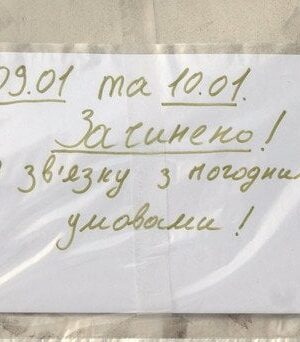 09.01 та 10.01.
Зачинено!
зв'язку з погодни
умовами!